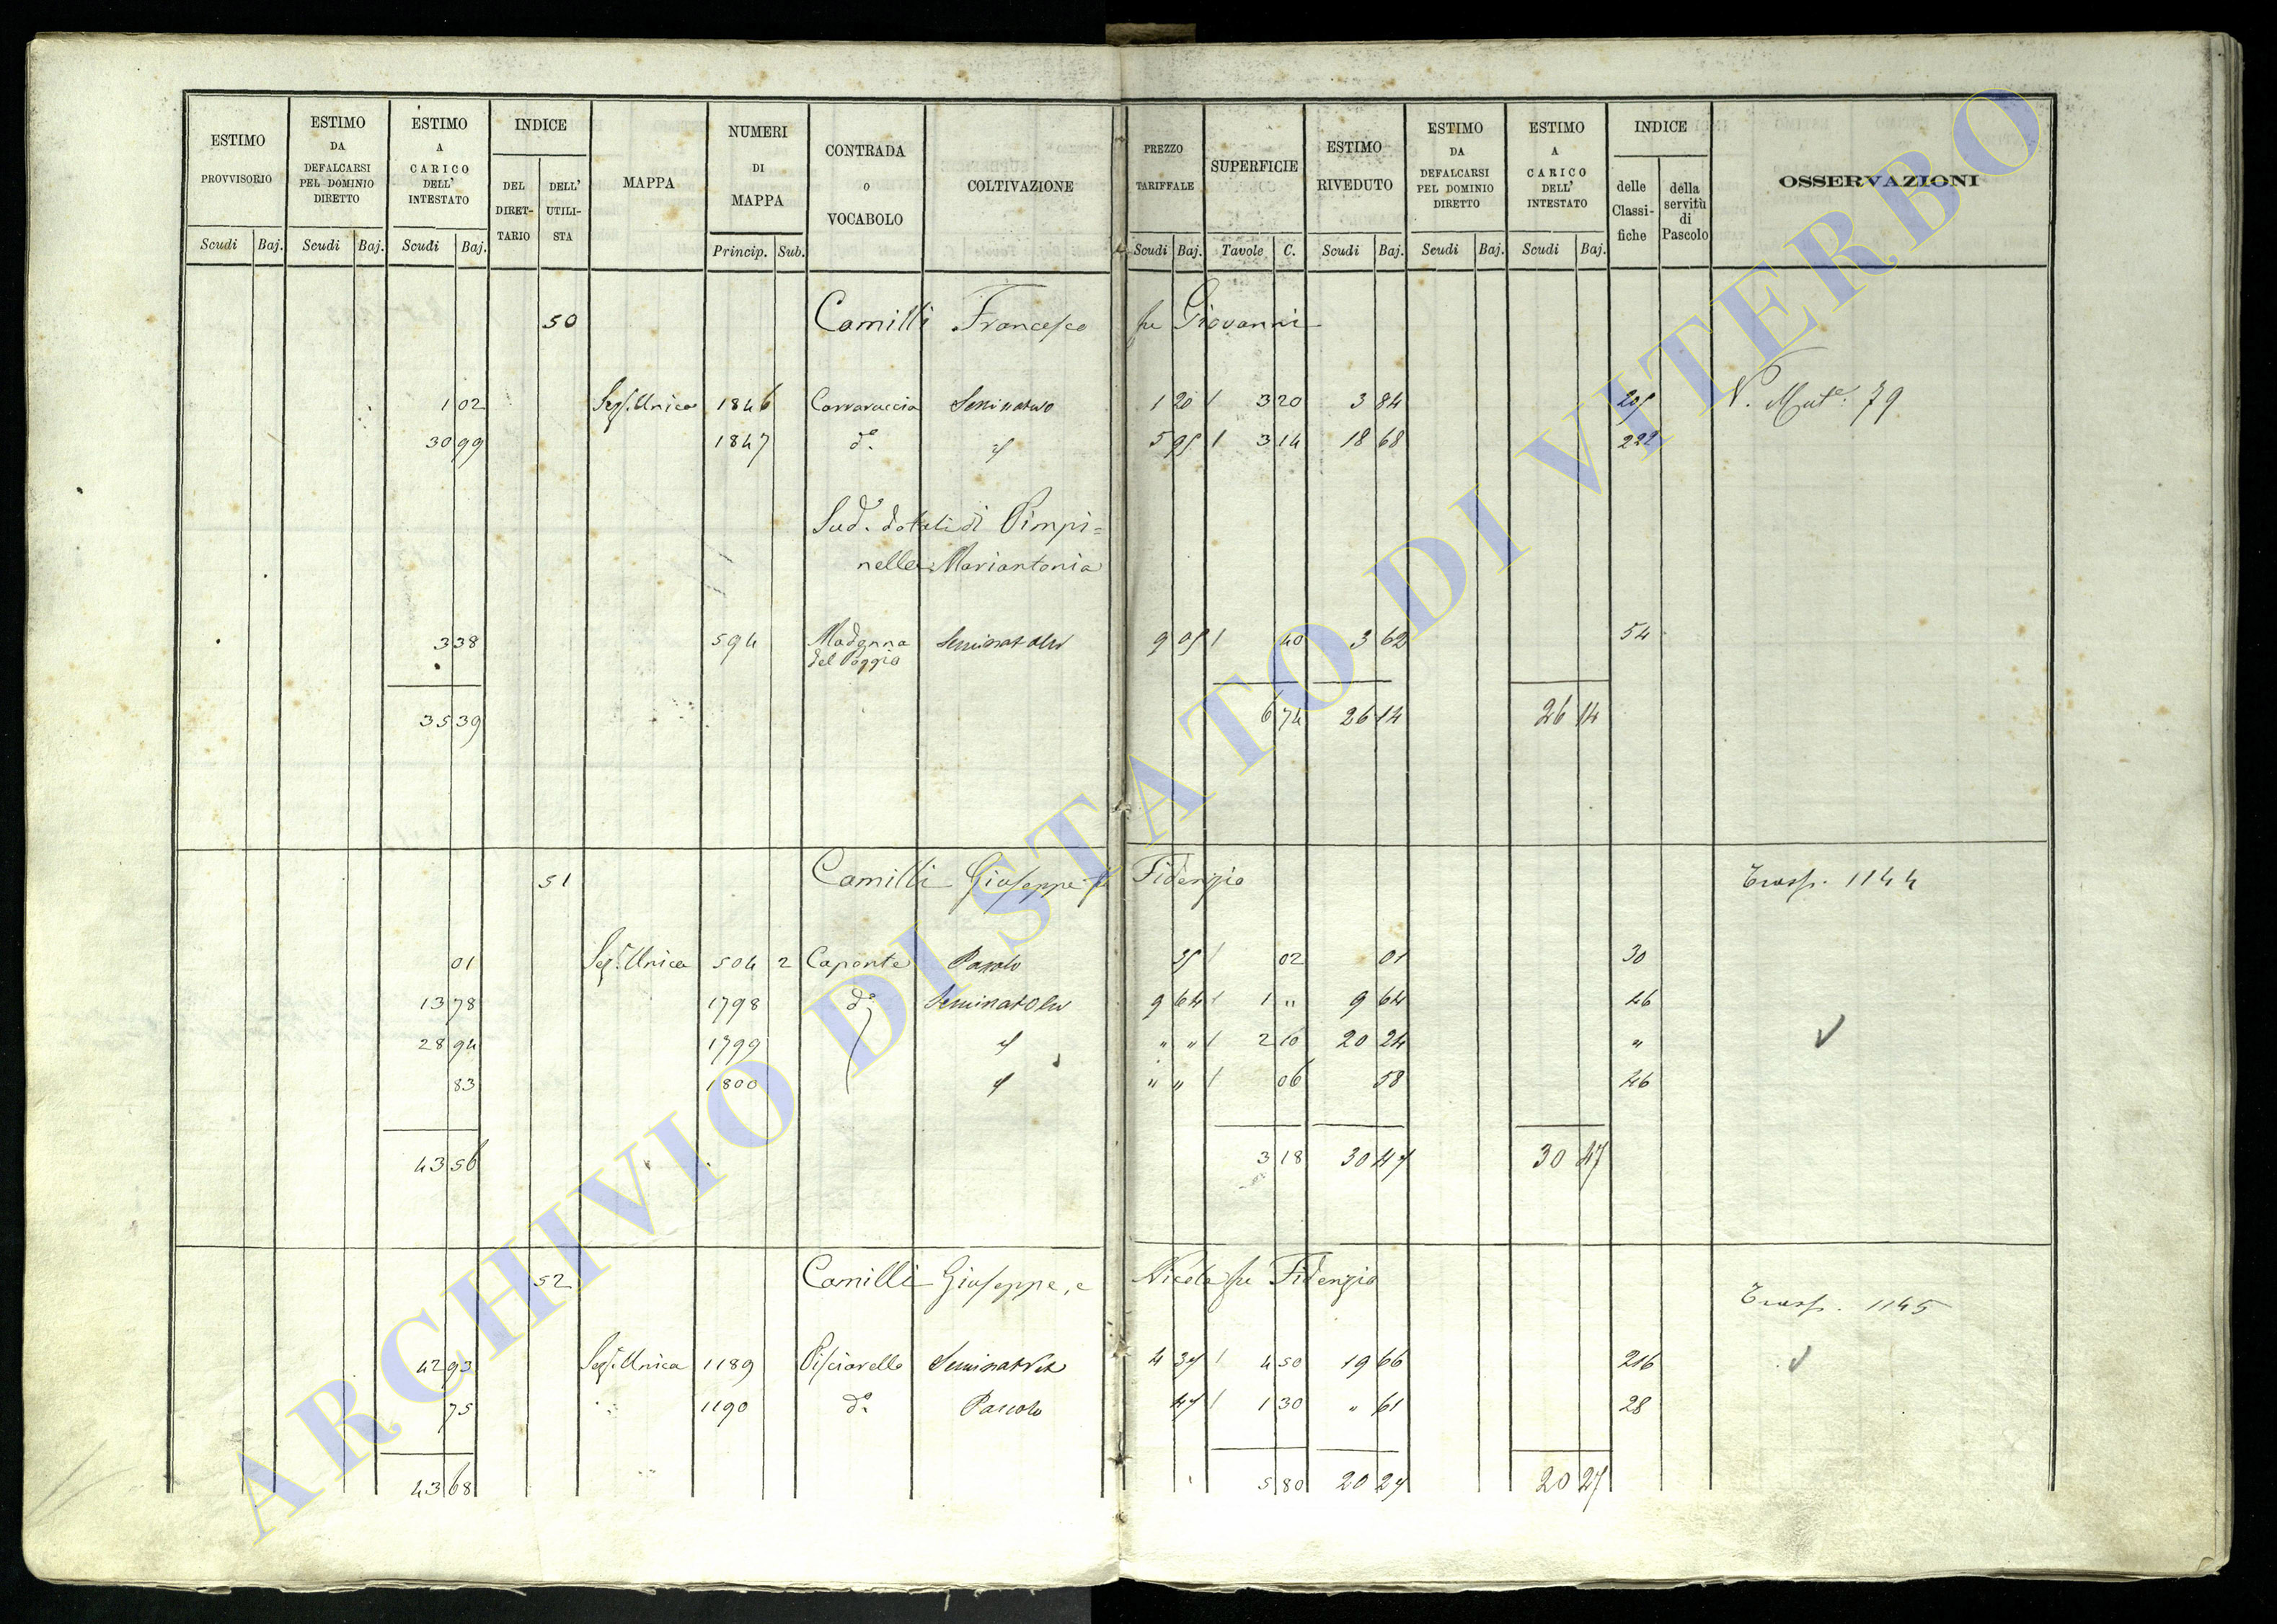 ESTIMO PROVVISORIO | ESTIMO DA DEFALCARSI PEL DOMINIO DIRETTO | ESTIMO A CARICO DELL' INTESTATO | INDICE | MAPPA | NUMERI DI MAPPA | CONTRADA O VOCABOLO | COLTIVAZIONE | PREZZO TARIFFALE | SUPERFICIE | ESTIMO RIVEDUTO | ESTIMO DA DEFALCARSI PEL DOMINIO DIRETTO | ESTIMO A CARICO DELL' INTESTATO | INDICE | OSSERVAZIONI
DEL DIRETTARIO | DELL' UTILISTA | delle Classifiche | della servitù di Pascolo
Scudi | Baj. | Scudi | Baj. | Scudi | Baj. | Princip. | Sub. | Scudi | Baj. | Tavole | C. | Scudi | Baj. | Scudi | Baj. | Scudi | Baj.
50 Camilli Francesco fu Giovanni
1 02 Sez. Unica 1846 Carraraccia Seminativo 1 20 / 3 20 3 84 205 V. Mut.e 79
30 99 1847 d.o 5 95 / 3 14 18 68 222
Sud. dotali di Pimpi=
nella Mariantonia
3 38 594 Madonna del Poggio Seminat Oliv 9 05 / 40 3 62 54
35 39 6 74 26 14 26 14
51 Camilli Giuseppe fu Fidenzio Trasp. 1144
01 Sez. Unica 504 2 Caponte Pascolo 35 / 02 01 30
13 78 1798 d.o Seminat Oliv 9 64 / 1 " 9 64 46
28 94 1799 " " / 2 10 20 24 "
83 1800 " " / 06 58 46
43 56 3 18 30 47 30 47
52 Camilli Giuseppe, e Nicola fu Fidenzio
Trasp. 1145
42 93 Sez. Unica 1189 Pisciarello 4 37 / 4 50 19 66 216
75 1190 d.o Pascolo 47 / 1 30 " 61 28
43 68 5 80 20 27 20 27
ARCHIVIO DI STATO DI VITERBO